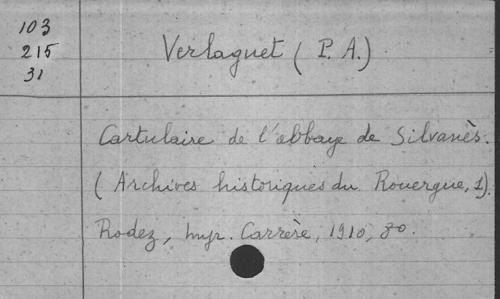 103
215
31
Verlaguet (P. A.)
Cartulaire de l'abbaye de Silvanès.
(Archives historiques du Rouergue, 1).
Rodez, Impr. Carrère, 1910, 8o.